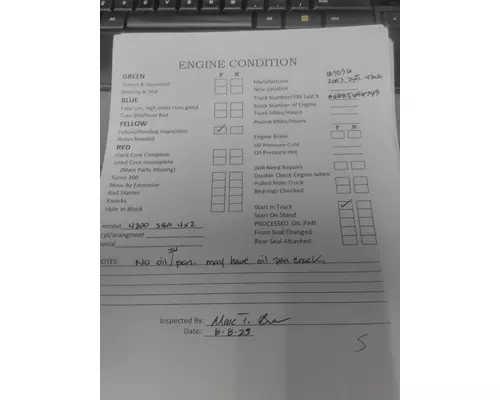 ENGINE CONDITION
GREEN Y N
Tested & Inspected
Bearing & Seal
BLUE
Take out, high miles runs good
Turn 360/Runs Bad
YELLOW
Yellow/Pending Inspection ✓
Notes Needed
RED
Used Core Complete
Used Core Incomplete
(Main Parts Missing)
Turns 360
Blow By Excessive
Bad Starter
Knocks
Hole in Block
model 4300 SBA 4x2
cpl/arangment
serial
Manufacture
New Location 2007 4300
Truck Number/VIN Last 8
Stock Number of Engine
Truck Miles/Hours
Promie Miles/Hours
Y N
Engine Brake
Oil Pressure Cold
Oil Pressure Hot
Will Need Repairs
Double Check Engine when
Pulled from Truck
Bearings Checked
Start In Truck ✓
Start On Stand
PROCESSED OIL PAN
Front Seal Changed
Rear Seal Attached
NOTES: No oil / in pan. may have oil pan cracks.
Inspected By: Marc T.
Date: 8-8-23
5